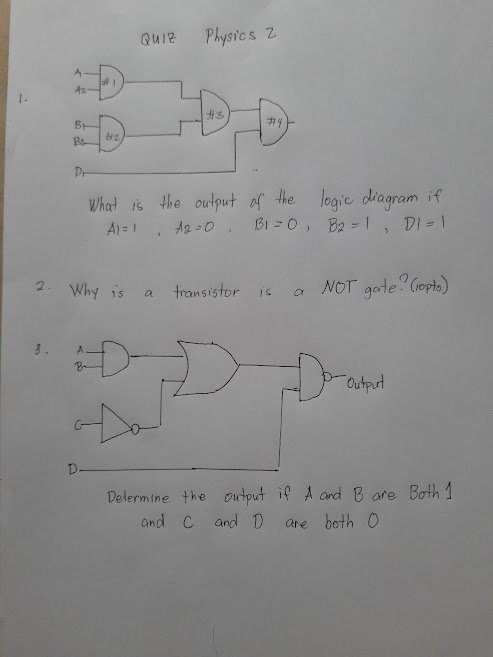 QUIZ Physics 2
1.
A
A2
#1
B1
B2
#2
#3
#4
D1
What is the output of the logic diagram if
A1=1 , A2=0 , B1=0 , B2=1 , D1=1
2. Why is a transistor is a NOT gate? (10pts)
3.
A
B
C
D
Output
Determine the output if A and B are Both 1
and C and D are both 0